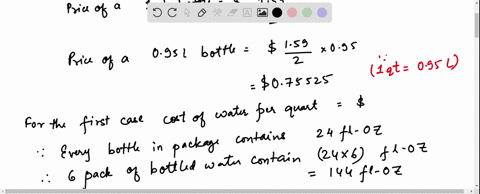 Price of a
Price of a 0.95 l bottle = $ 1.59/2 × 0.95
= $0.75525
(∵ 1 qt = 0.95 L)
For the first case cost of water per quart = $
∵ Every bottle in package contains 24 fl-OZ
∴ 6 pack of bottled water contain (24×6) fl-OZ
= 144 fl-OZ